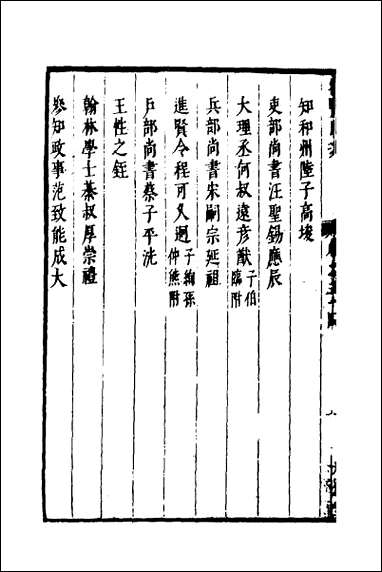 知和州陸子高埈
吏部尚書汪聖錫應辰
大理丞何叔遠彦猷子伯臨附
兵部尚書宋嗣宗延祖
進賢令程可久迥子絢孫仲熊附
户部尚書蔡子平洸
王性之銍
翰林學士綦叔厚崇禮
叅知政事范致能成大